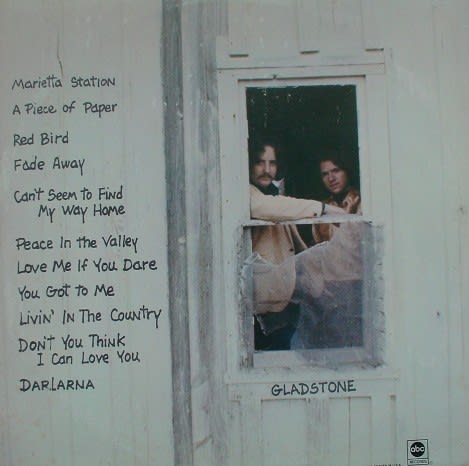 Marietta Station
A Piece of Paper
Red Bird
Fade Away
Can't Seem to Find
My Way Home
Peace In the Valley
Love Me If You Dare
You Got to Me
Livin' In The Country
Don't You Think
I Can Love You
Darlarna
GLADSTONE
abc
RECORDS